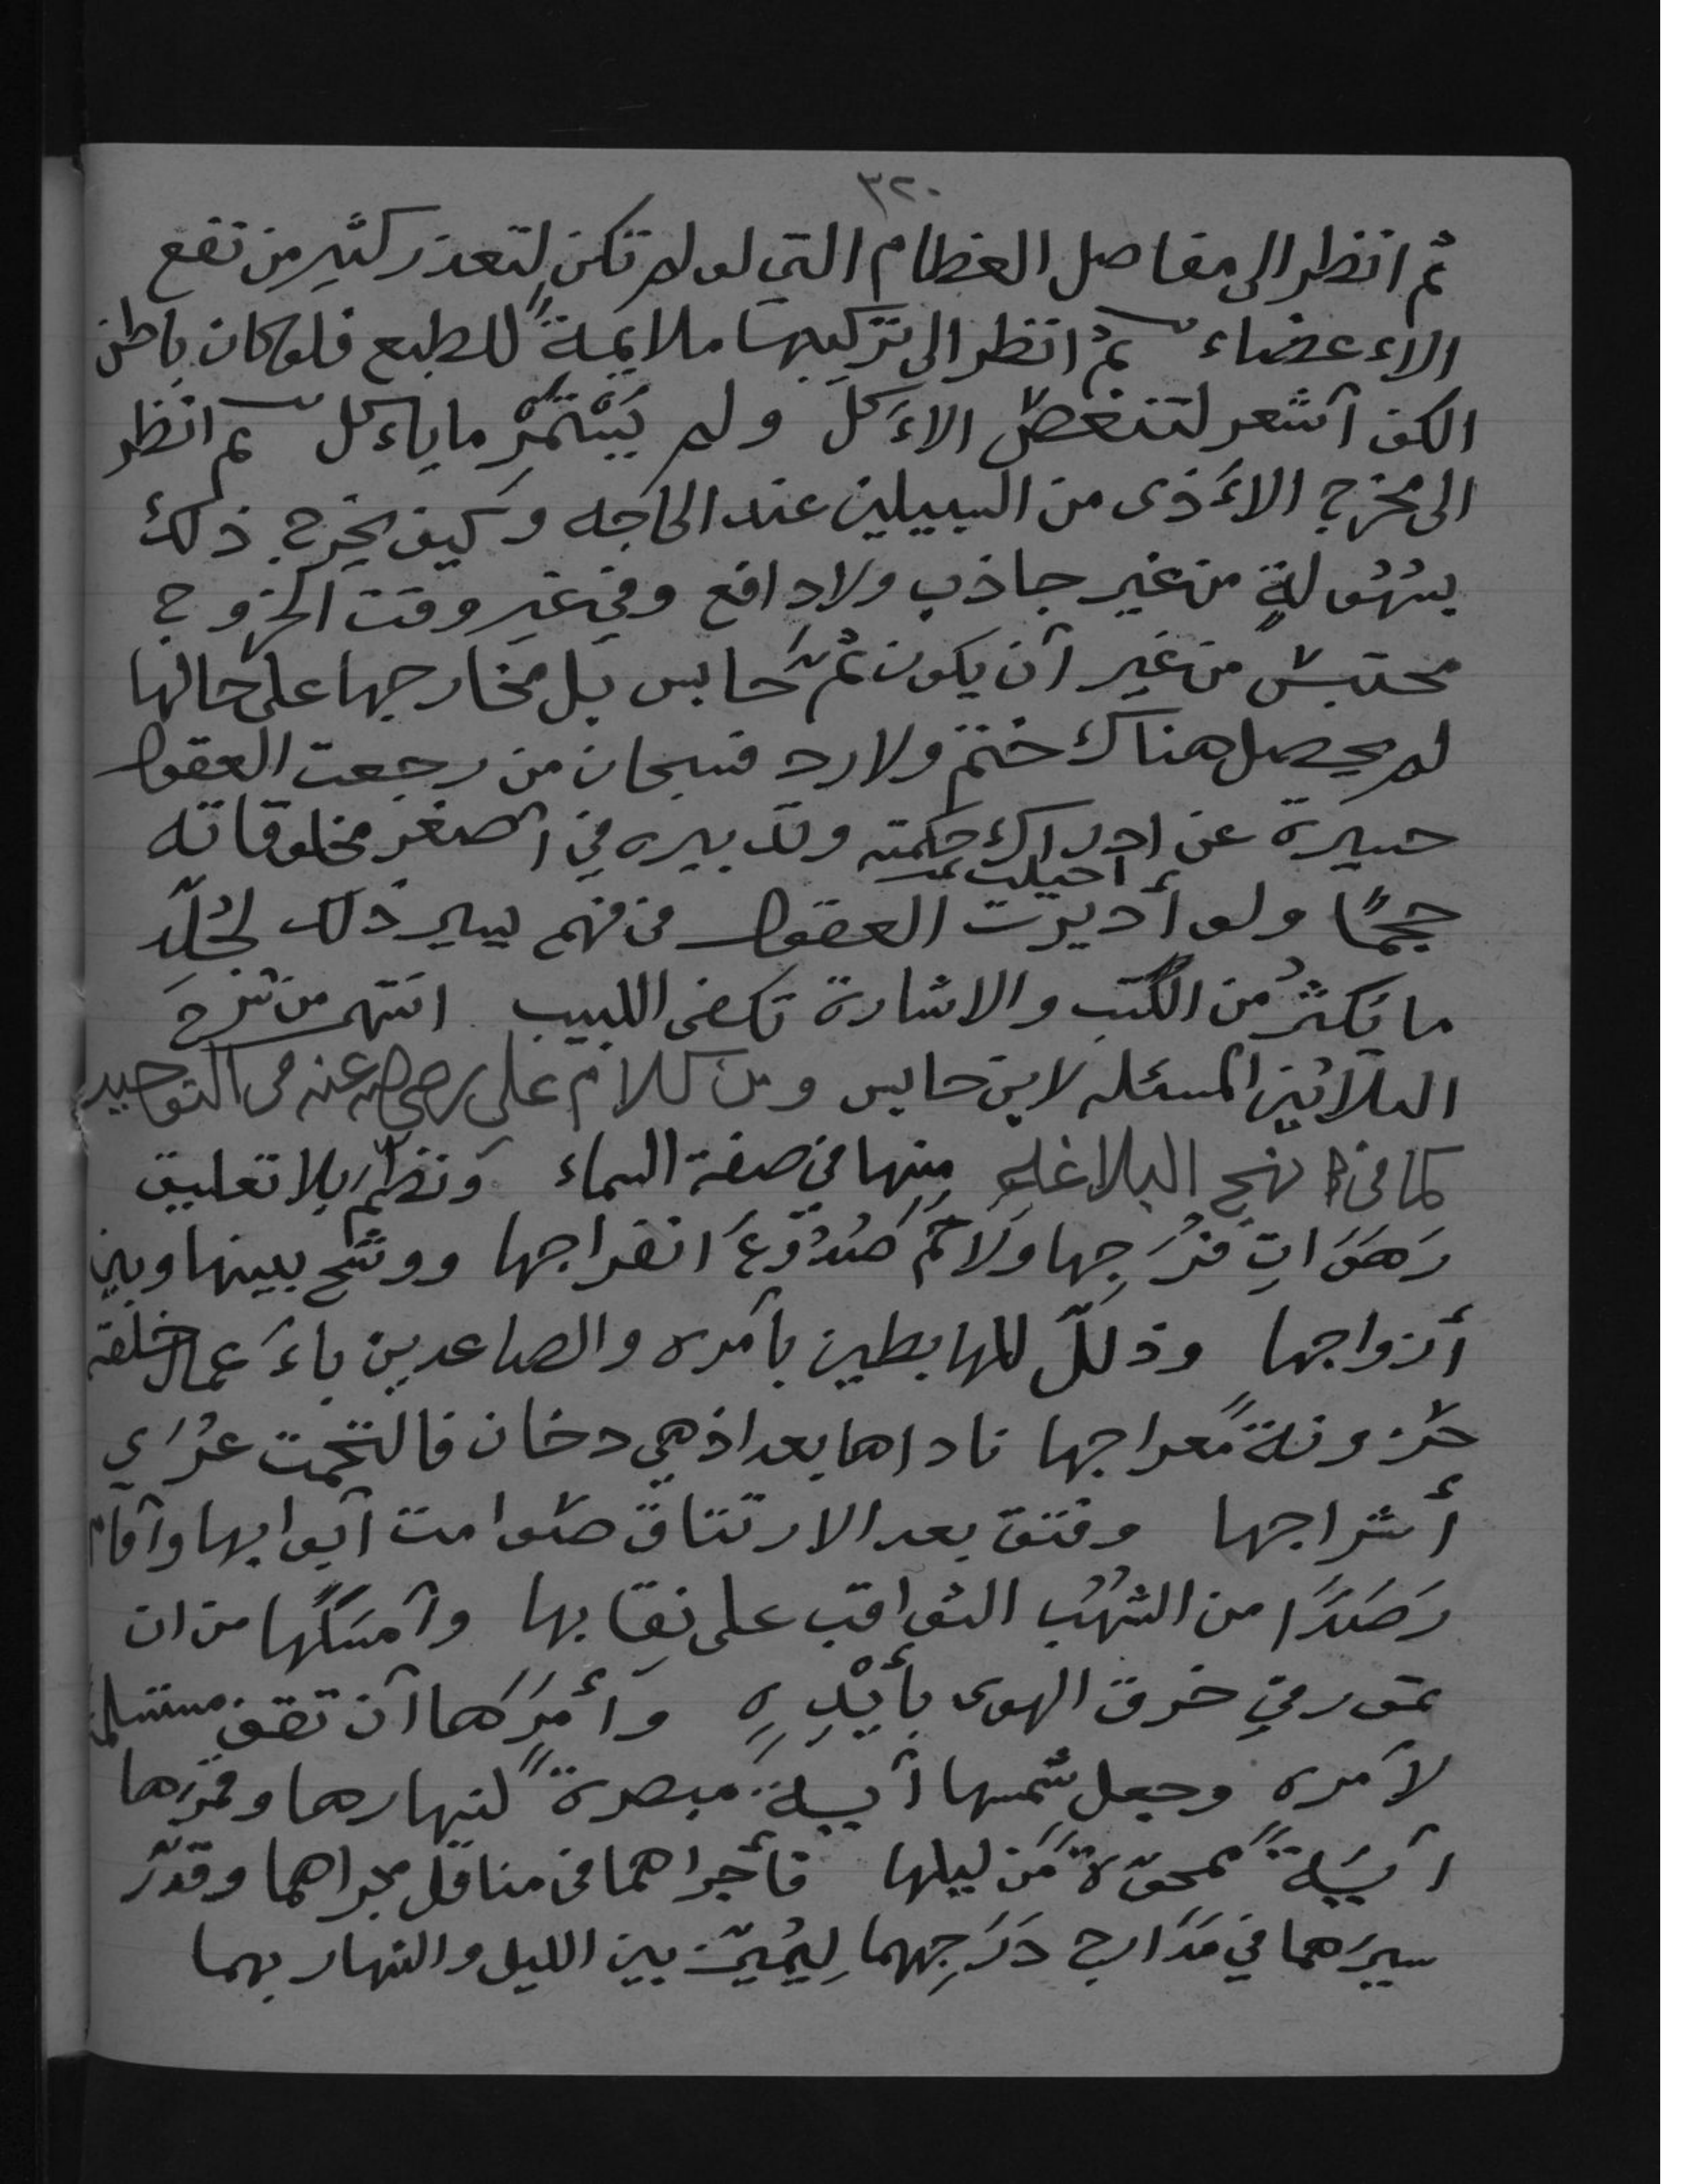 ٣٢٠
ثم انظر الى مفاصل العظام التي لو لم تكن لتعذر كثير من نفع
الاءعضاء ثم انظر الى تركيبها ملايمةً للطبع فلو كان باطن
الكف أشعر لتنغصّ الاءَكل ولم يَسْتَمْرِ ما ياءكل ثم انظر
الى مخرج الاءَذى من السبيلين عند الحاجه وكيف يخرج ذلك
بسُهُولةٍ من غير جاذب ولا دافع وفي غير وقت الخروج
محتبسٌ من غير أن يكون ثَمَّ حابس بل مخارجها على حالها
لم يحصل هناك ختم ولا رد فسبحان من رجعت العقول
حسيرة عن ادراك حكمته وتدبيره في أصغر مخلوقاته
احيلت
حجمًا ولو أديرت العقول في فهم يسير ذلك لخُلّد
ما يَكثُرُ من الكُتب والاشارة تكفى اللبيب انتهى من شرح
الثلاثين المسئله لابن حابس ومن كلام على رضي الله عنه في التوحيد
كما في نهج البلاغه منها في صفة السماء ونظم بلا تعليق
رَهَوَاتِ فُرَجِها ولاَحَم صُدُوْعَ انفراجها ووشّج بينها وبين
أزواجها وذلّل للهابطين بأمره والصاعدين باءَعمال خلقه
حُزونةَ معراجها ناداها بعد اذ هي دخان فالتحمت عُرَي
أشراجها وفتق بعد الارتتاق صوامت أبوابها وأقام
رَصَدًا من الشُهُب الثواقب على نِقابها وأمسَكَها من ان
تمور في خرق الهوى بأيْدِهِ وأمَرَها أن تقف مستسلمة
لأمره وجعل شمسها أيـةً مبصرةً لنهارها وقمرَها
أيـةً ممحوّةً من ليلها فأجراهما في مناقل مجراهما وقدّر
سيرَهما في مَدَارج دَرَجِهما لِيُميّز بين الليل والنهار بهما